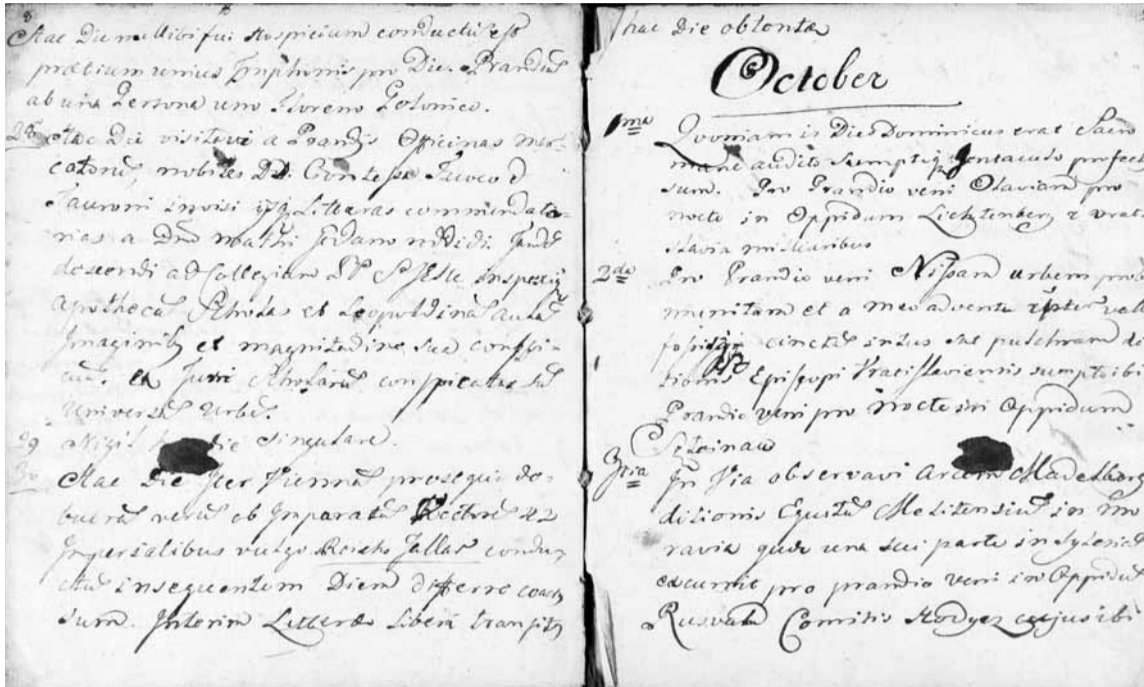 Hac Die mihi fui Hospicium conductũ est
prætium unius pro Die. Prandiũ
ab una Persona uno Floreno Polonico.
28 Hac Die visitavi a Prandio Officinas mer-
catorũ, nobiles DD. Comtesse Fuoco è
Tauroni invisi Litteras commendato-
rias a Dno reddidi. Inde
descendi ad Collegium PP S. Jesu inspexiq
apothecã Scholas et Leopoldinã aulã
Imaginibꝫ et magnitudine sua conspi-
cuã, ex Turri Scholarũ conspicatus sũ
Universã Urbẽ.
29 Nigil hac die singulare.
30 Hac Die Iter Viennã prosequi de-
buerã verũ ob Imparatũ 42
Imperialibus vulgo Reichs Tallar condu-
ctũ in sequentem Diem differre coactꝫ
sum. Interim Litteræ Liberi transitꝫ
hac Die obtentæ
October
1ma Quoniam is Dies Dominicus erat Sacro
mane audito Sumptoq Jentaculo profectꝫ
sum. Pro Prandio veni Olaviam pro
nocte in Oppidum Lichtenberg 7 Vrati-
slavia milliaribus
2da Pro Prandio veni Nissam urbem præ-
munitam et a meo adventu
cinctũ intus sat pulchram di-
tionis Episcopi Vratislaviensis sumpto ibi
Prandio veni pro nocte in Oppidum

3tia In Via observavi arcem Madelberg
ditionis Equitũ Melitensiũ in Mo-
ravia quæ una sui parte in Sylesiã
excurrit pro prandio veni in Oppidũ
Rusvald Comitis Hodyez cujus ibi